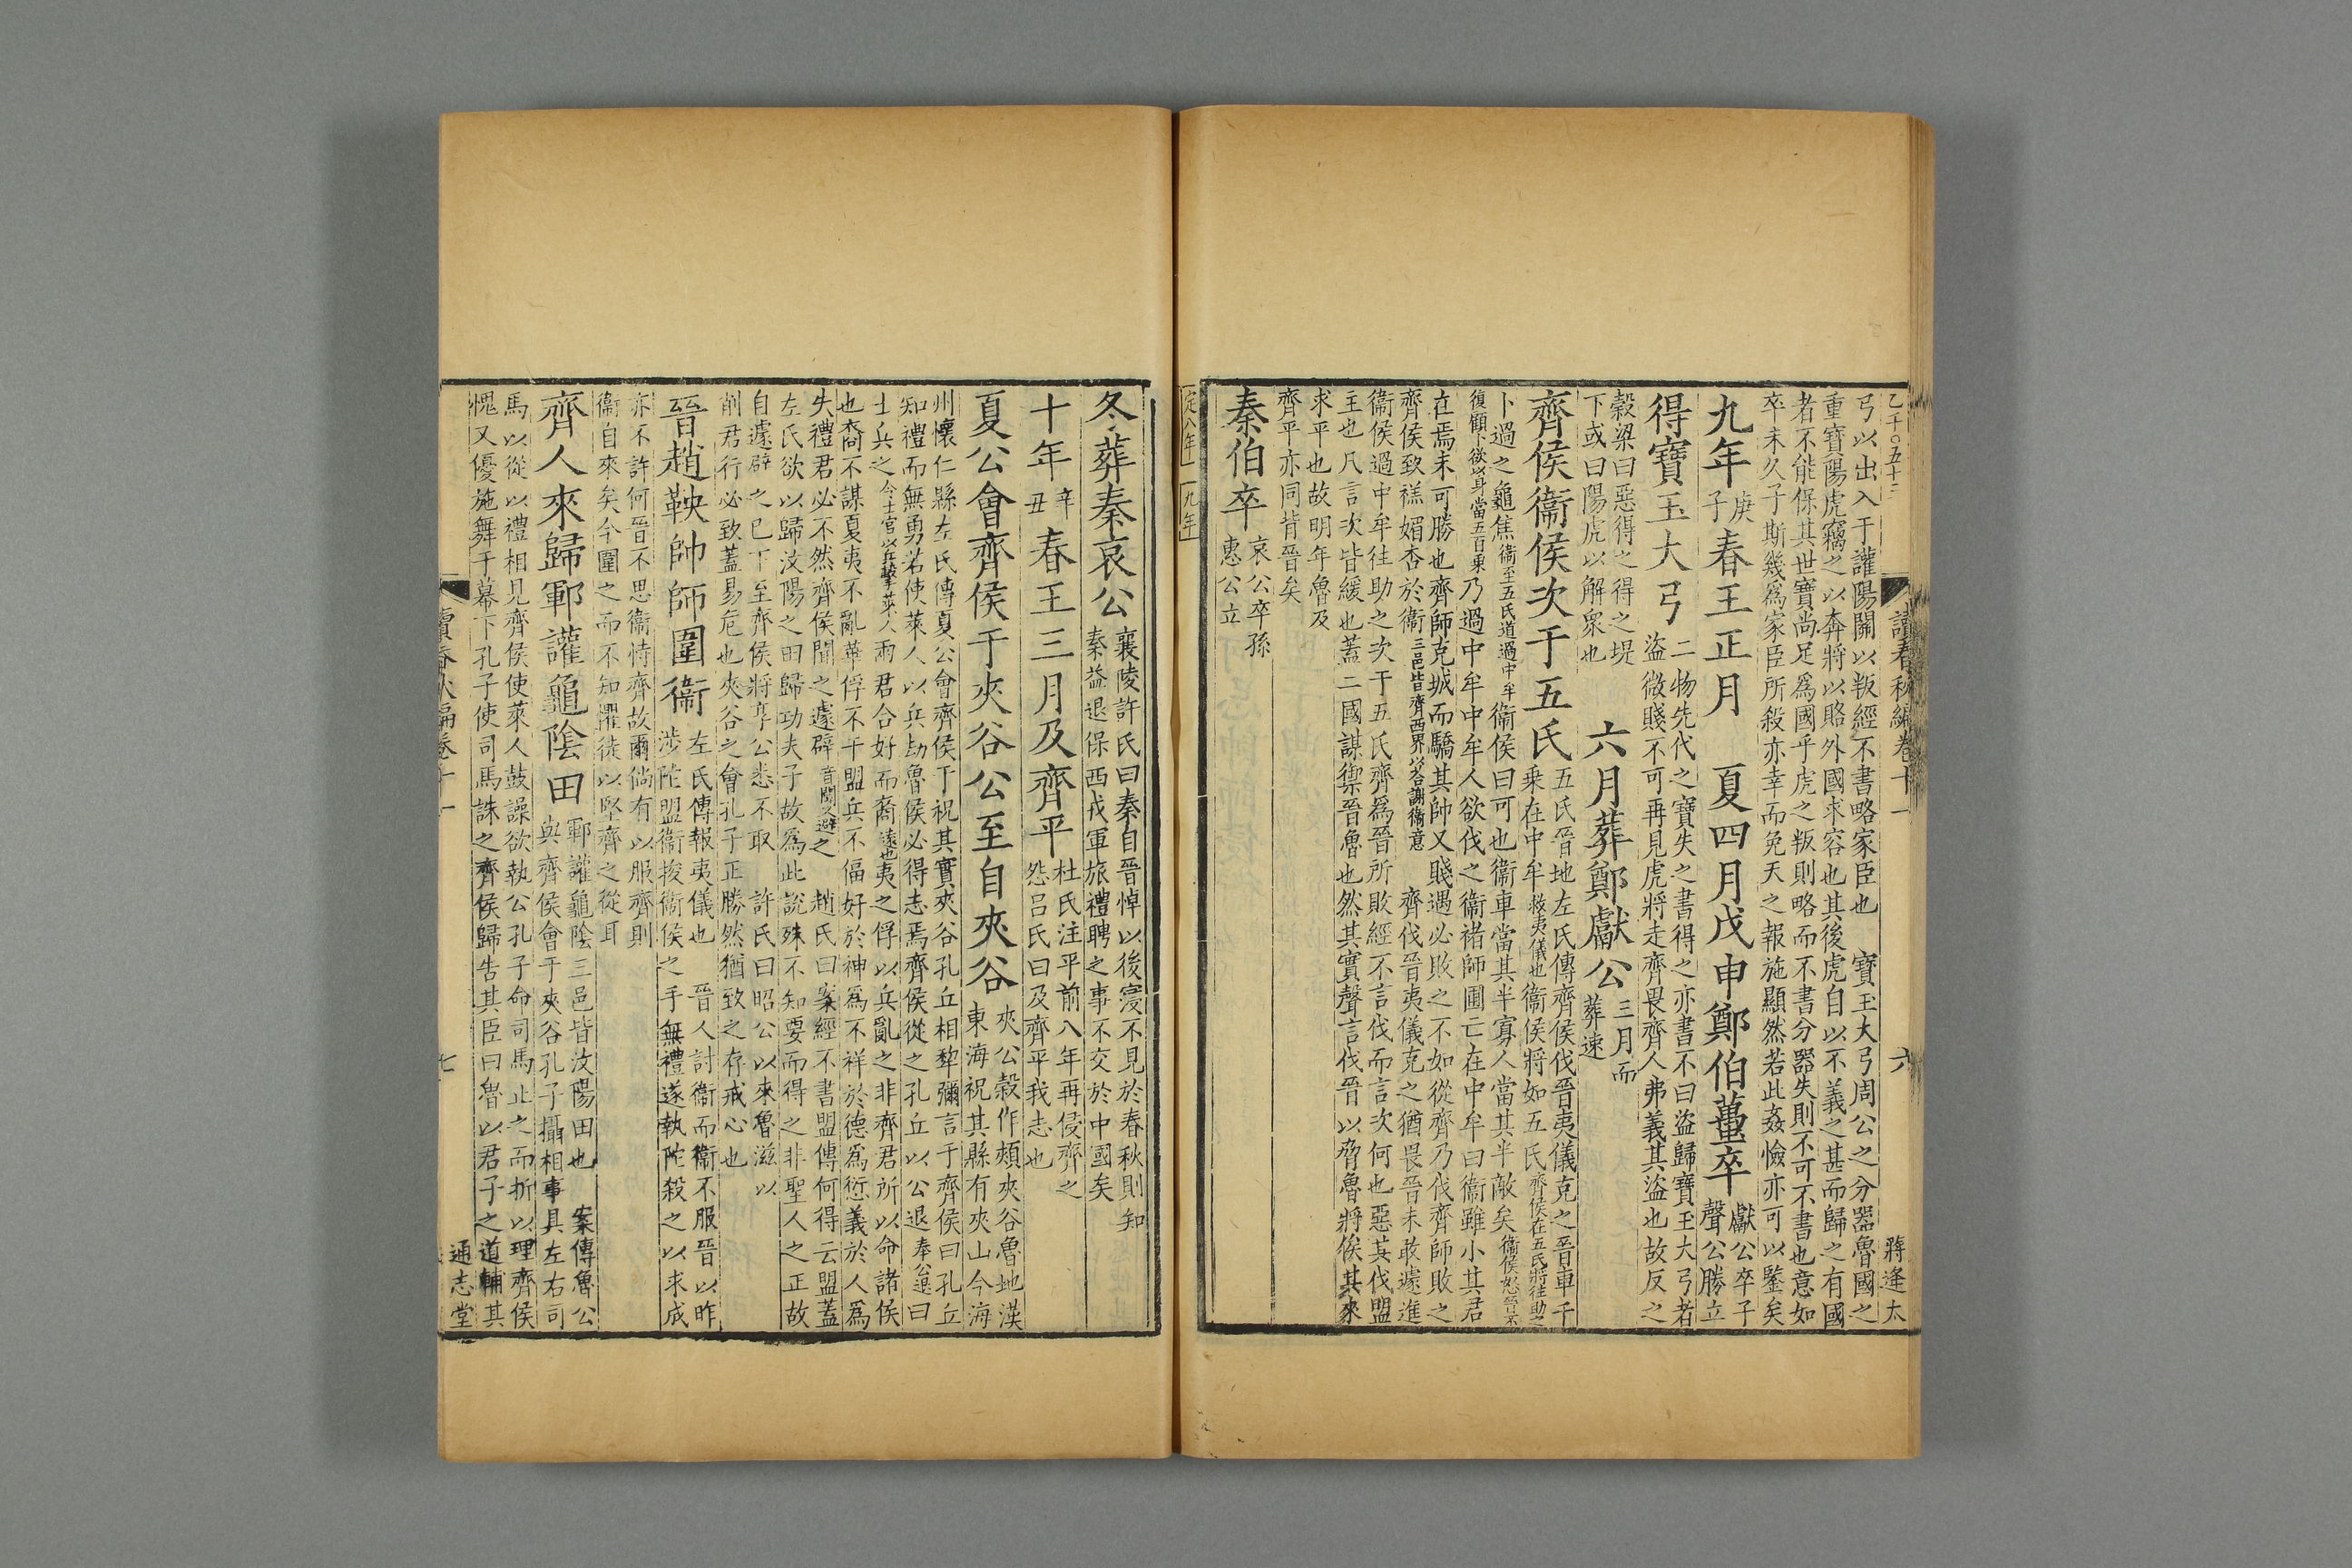 乙千〇五十三
讀春秋編卷十一
六
蔣逢太
弓以出入于讙陽關以叛經不書略家臣也 寶玉大弓周公之分器魯國之
重寶陽虎竊之以奔將以賂外國求容也其後虎自以不義之甚而歸之有國
者不能保其世寶尚足爲國乎虎之叛則略而不書分器失則不可不書也意如
卒未久子斯幾爲家臣所殺亦幸而免天之報施顯然若此姦憸亦可以鑒矣
九年庚子春王正月 夏四月戊申鄭伯蠆卒獻公卒子聲公勝立
得寶玉大弓二物先代之寶失之書得之亦書不曰盜歸寶玉大弓者盜微賤不可再見虎將走齊畏齊人弗義其盜也故反之
穀梁曰惡得之得之堤下或曰陽虎以解衆也 六月葬鄭獻公三月而葬速
齊侯衞侯次于五氏五氏晉地左氏傳齊侯伐晉夷儀克之晉車千乗在中牟救夷儀也衞侯將如五氏齊侯在五氏將往助之
卜過之龜焦衞至五氏道過中牟衞侯曰可也衞車當其半寡人當其半敵矣衞侯怒晉不
復顧卜欲以身當五百乗乃過中牟中牟人欲伐之衞褚師圃亡在中牟曰衞雖小其君
在焉未可勝也齊師克城而驕其帥又賤遇必敗之不如從齊乃伐齊師敗之
齊侯致禚媚杏於衞三邑皆齊西界以荅謝衞意 齊伐晉夷儀克之猶畏晉未敢遽進
衞侯過中牟往助之次于五氏齊爲晉所敗經不言伐而言次何也惡其伐盟
主也凡言次皆緩也蓋二國謀禦晉魯也然其實聲言伐晉以脅魯將俟其來
求平也故明年魯及
齊平亦同背晉矣
秦伯卒哀公卒孫惠公立
定八年 九年
冬葬秦哀公襄陵許氏曰秦自晉悼以後寖不見於春秋則知秦益退保西戎軍旅禮聘之事不交於中國矣
十年辛丑春王三月及齊平杜氏注平前八年再侵齊之怨呂氏曰及齊平我志也
夏公會齊侯于夾谷公至自夾谷夾公穀作頰夾谷魯地漢東海祝其縣有夾山今海
州懷仁縣左氏傳夏公會齊侯于祝其實夾谷孔丘相犂彌言于齊侯曰孔丘
知禮而無勇若使萊人以兵劫魯侯必得志焉齊侯從之孔丘以公退奉公退曰
士兵之令士官以兵擊萊人兩君合好而裔遠也夷之俘以兵亂之非齊君所以命諸侯
也裔不謀夏夷不亂華俘不干盟兵不偪好於神爲不祥於德爲愆義於人爲
失禮君必不然齊侯聞之遽辟音闢又避之 趙氏曰案經不書盟傳何得云盟蓋
左氏欲以歸汶陽之田歸功夫子故爲此說殊不知要而得之非聖人之正故
自遽辟之已下至齊侯將享公悉不取 許氏曰昭公以來魯滋以
削君行必致蓋易危也夾谷之會孔子正勝然猶致之存戒心也
晉趙鞅帥師圍衞左氏傳報夷儀也 晉人討衞而衞不服晉以昨涉陀盟衞捘衞侯之手無禮遂執陀殺之以求成
亦不許何晉不思衞恃齊故爾倘有以服齊則
衞自來矣今圍之而不知懼徒以堅齊之從耳
齊人來歸鄆讙龜陰田鄆讙龜陰三邑皆汶陽田也 案傳魯公與齊侯會于夾谷孔子攝相事具左右司
馬以從以禮相見齊侯使萊人鼓譟欲執公孔子命司馬止之而折以理齊侯
愧又優施舞于幕下孔子使司馬誅之齊侯歸告其臣曰魯以君子之道輔其
讀春秋編卷十一
七
通志堂